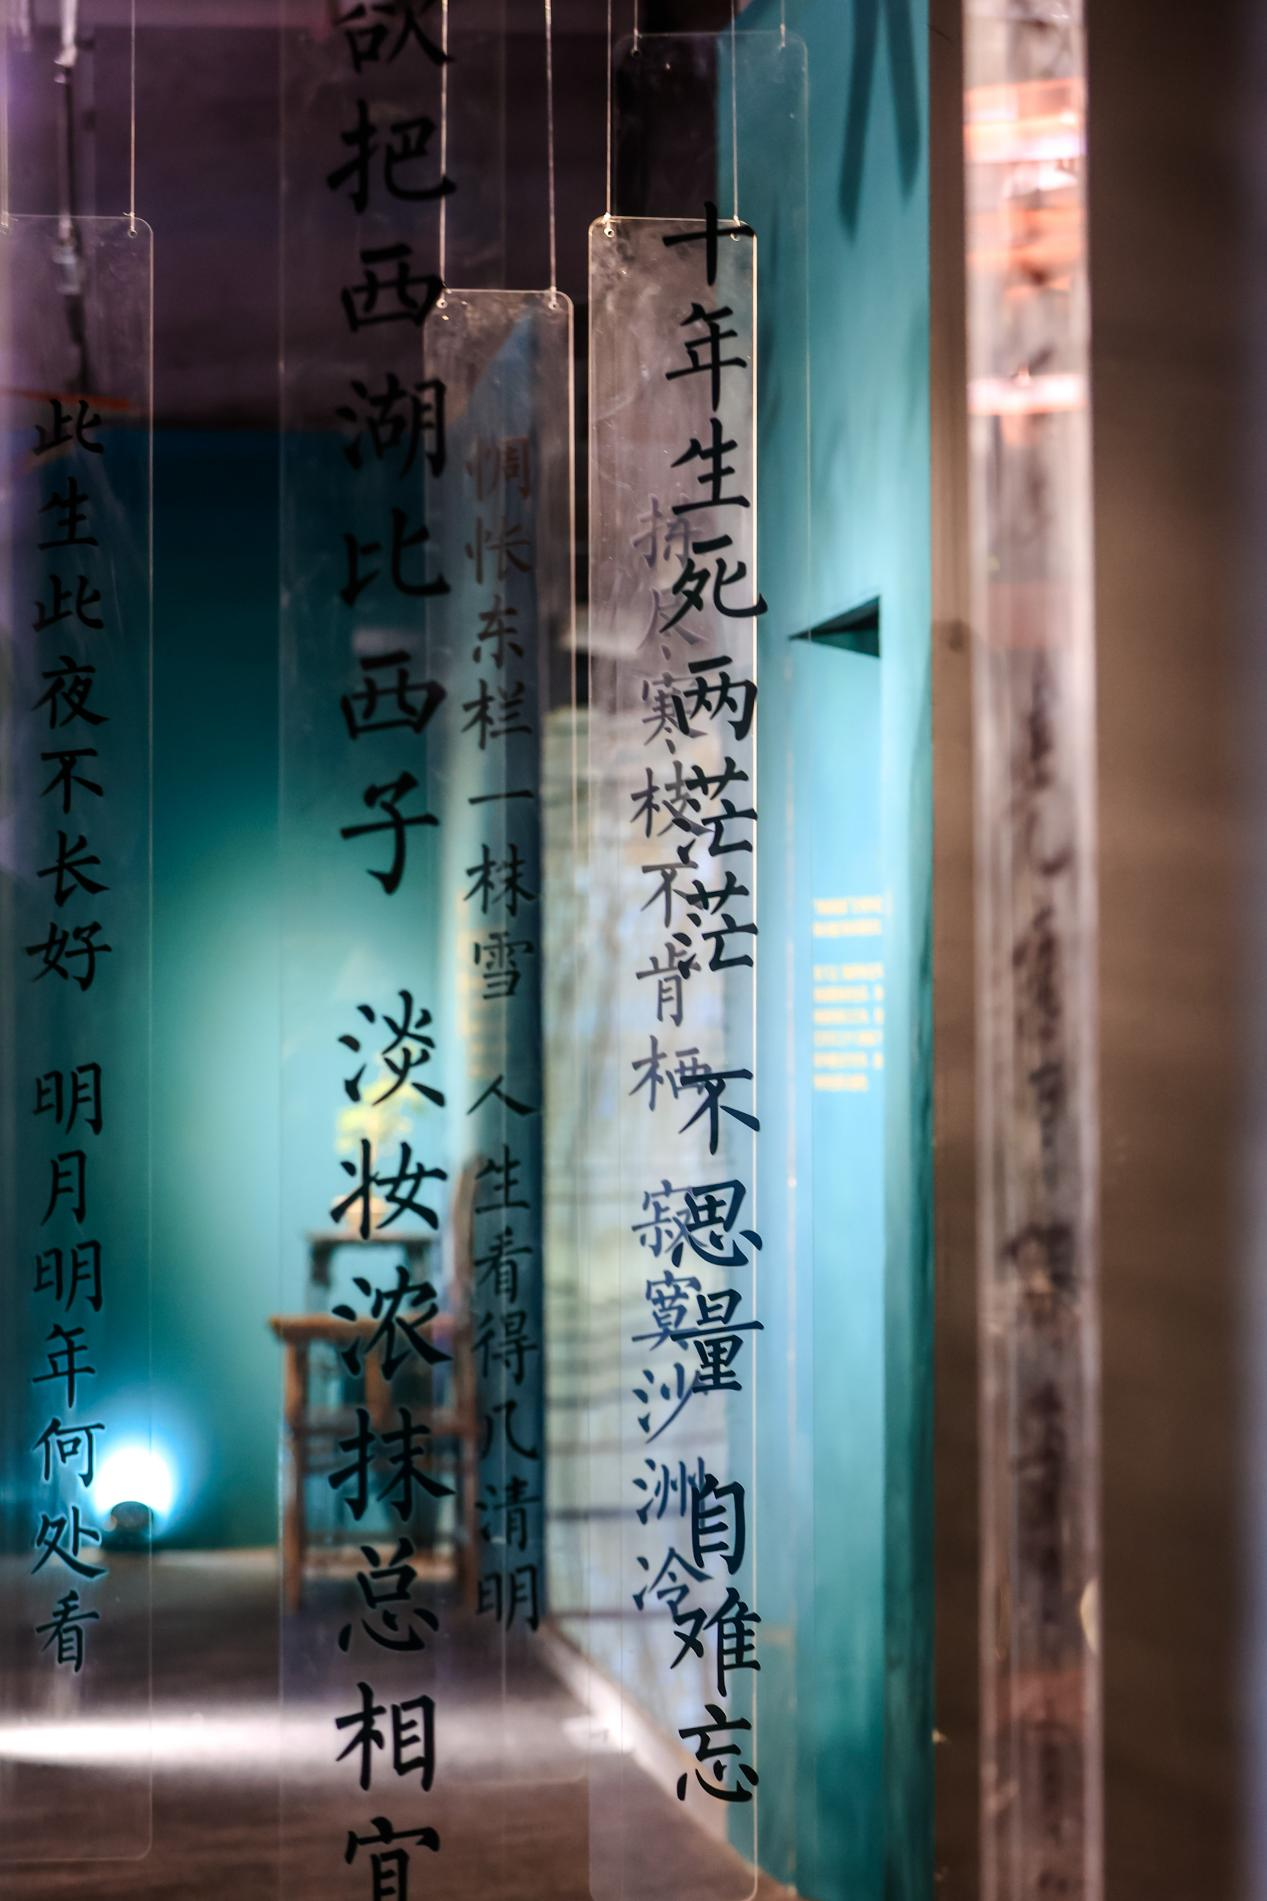 十年生死两茫茫 不思量 自难忘
拣尽寒枝不肯栖 寂寞沙洲冷
惆怅东栏一株雪 人生看得几清明
欲把西湖比西子 淡妆浓抹总相宜
此生此夜不长好 明月明年何处看